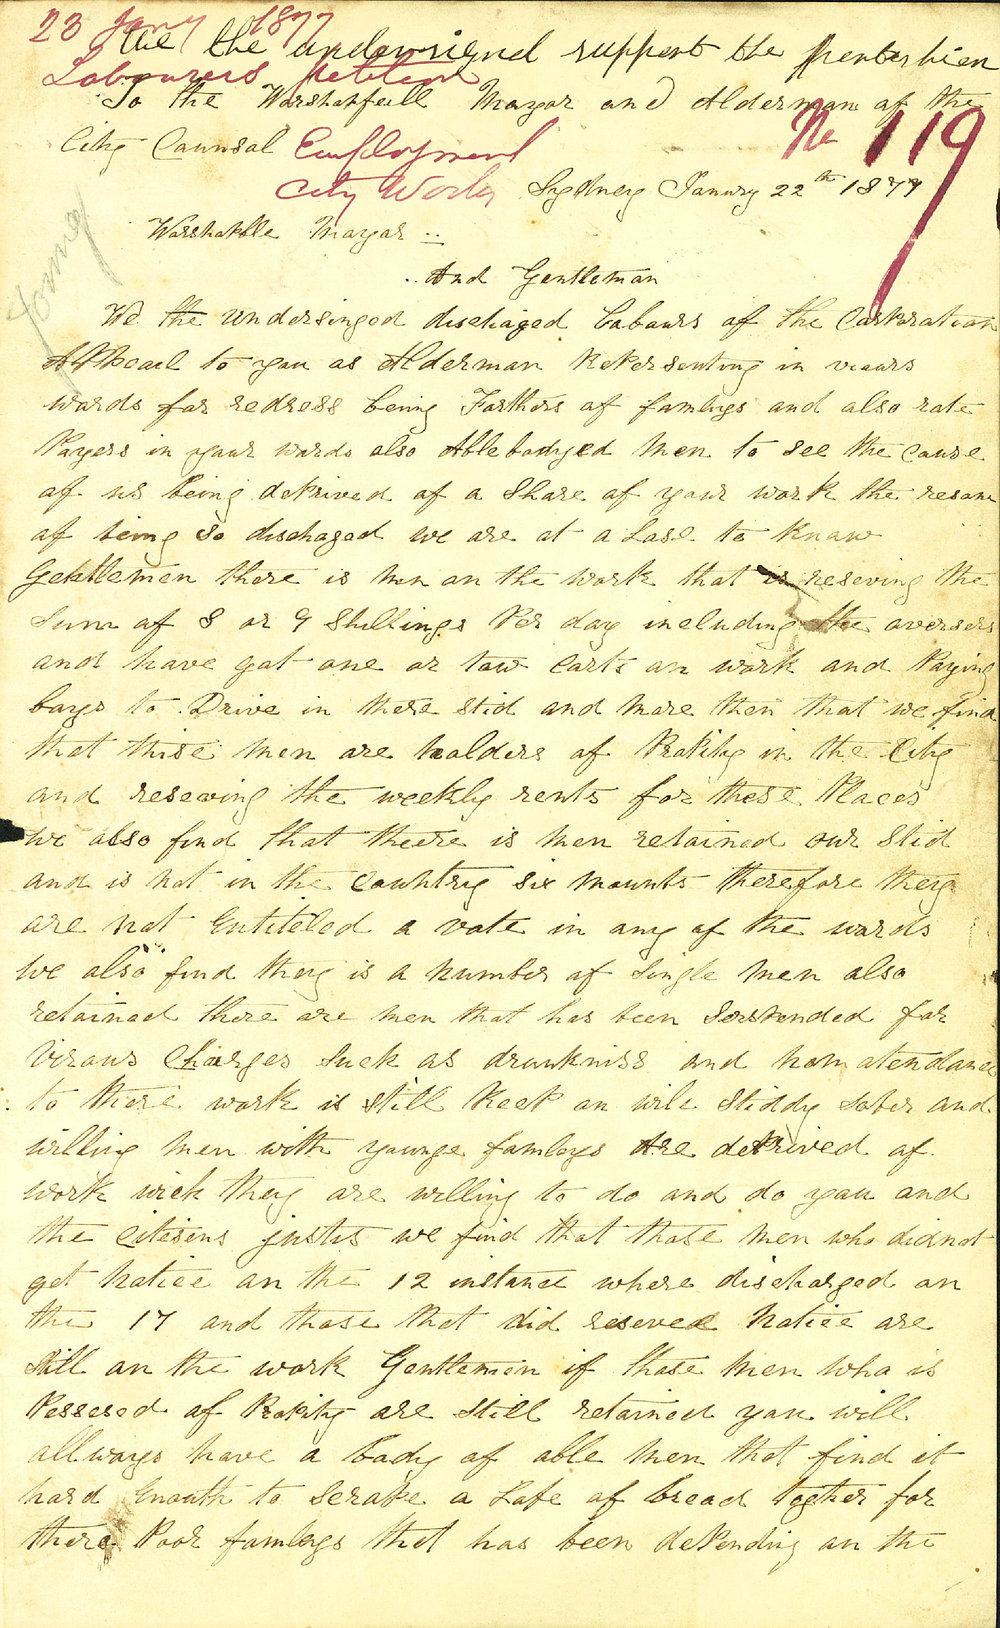 23 Jany 1877
We the undersigned support the pentechien
Labourers petition
To the Warshapfull Mayor and Alderman af the
City Caunsal Employment
No 119
City Works Sydney Janury 22th 1877
Warshapble Mayar
And Gentleman
We the undersinged dischaged Labaurs af the Carperatian
Appeal to you as Alderman Repersenting in viaurs
wards far redress being Farthers af famleys and also rate
Payers in yaur wards also Ablebodyed Men to see the cause
af us being deprived af a Share af yaur wark the resane
af being so dischaged we are at a Lase to Knaw
Gentlemen there is Men an the wark that is reseving the
sum af 8 or 9 Shillings Per day including the aversers
and have gat one or taw Carts an wark and Paying
bays to Drive in there stid and mare then that we find
that thise men are halders af Prapity in the City
and reseaving the weekly rents for these Places
we also find that there is men retained our Stid
and is nat in the Cauhtry six maunts therefore they
are nat Entiteled a vate in any af the wards
we also find they is a number af Single men also
retained there are men that has been Serspended far
viraus Charges Suck as drunkniss and nom atendance
to there wark is still Keep an wile Stiddy Saber and
willing men with younge famleys Are deprived af
wark wick they are willing to do and do you and
the citesens justis we find that thase men who did not
get Natice an the 12 instance where discharged an
the 17 and thase that did reseved Natice are
still an the wark Gentlemen if thase men wha is
Pessesed af Prapity are still retained yau will
allways have a bady af able men that find it
hard Enauth to Scrape a Lafe af bread togther for
there Poor famleys that has been depending an the